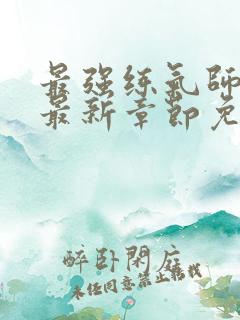 最强练气师
最新章节免
醉卧閑庭
未经同意禁止转载